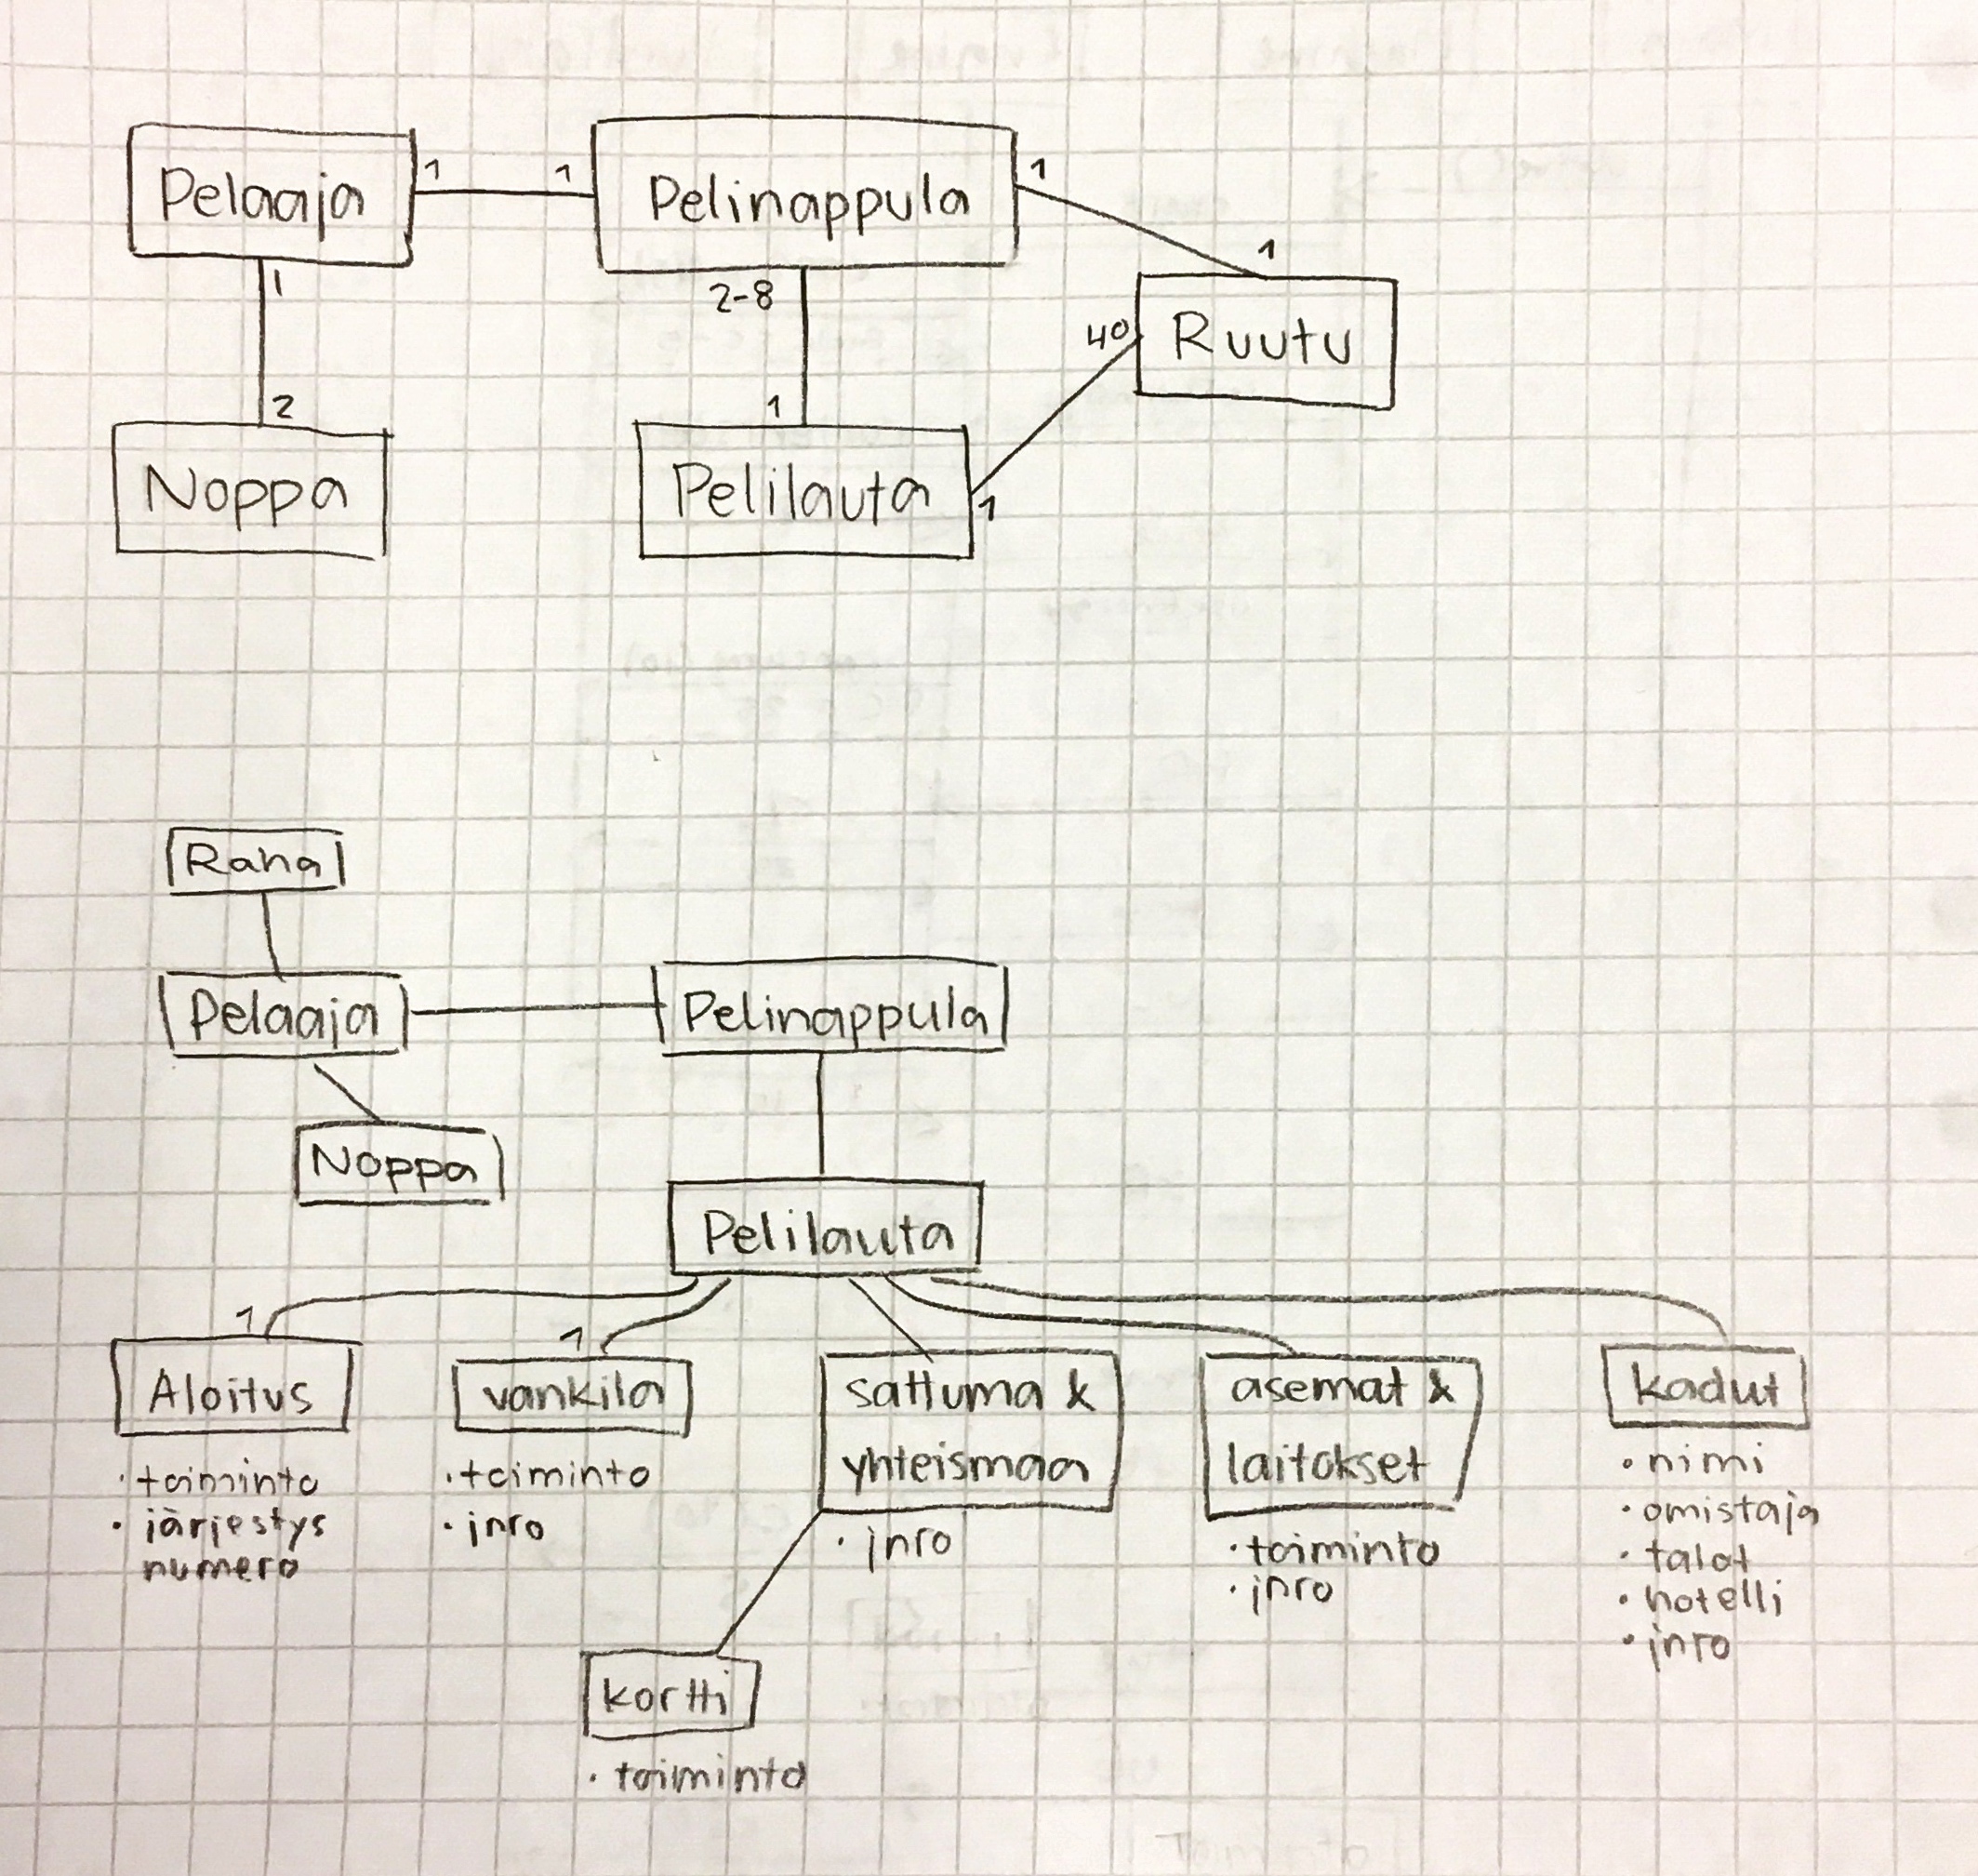 Pelaaja
1
1
Pelinappula
1
1
Ruutu
40
1
2
Noppa
2-8
1
Pelilauta
1
Raha
Pelaaja
Pelinappula
Noppa
Pelilauta
1
Aloitus
· toiminto
· järjestys
numero
1
vankila
· toiminto
· jnro
sattuma &
yhteismaa
· jnro
kortti
· toiminto
asemat &
laitokset
· toiminto
· jnro
kadut
· nimi
· omistaja
· talot
· hotelli
· jnro